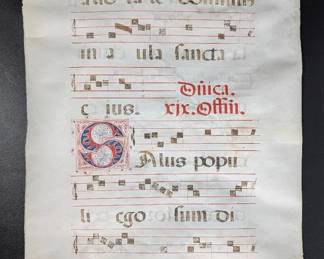 in a ula sancta
Dñica.
c ius. xix. Offiii.
Salus popu
li ego sum di